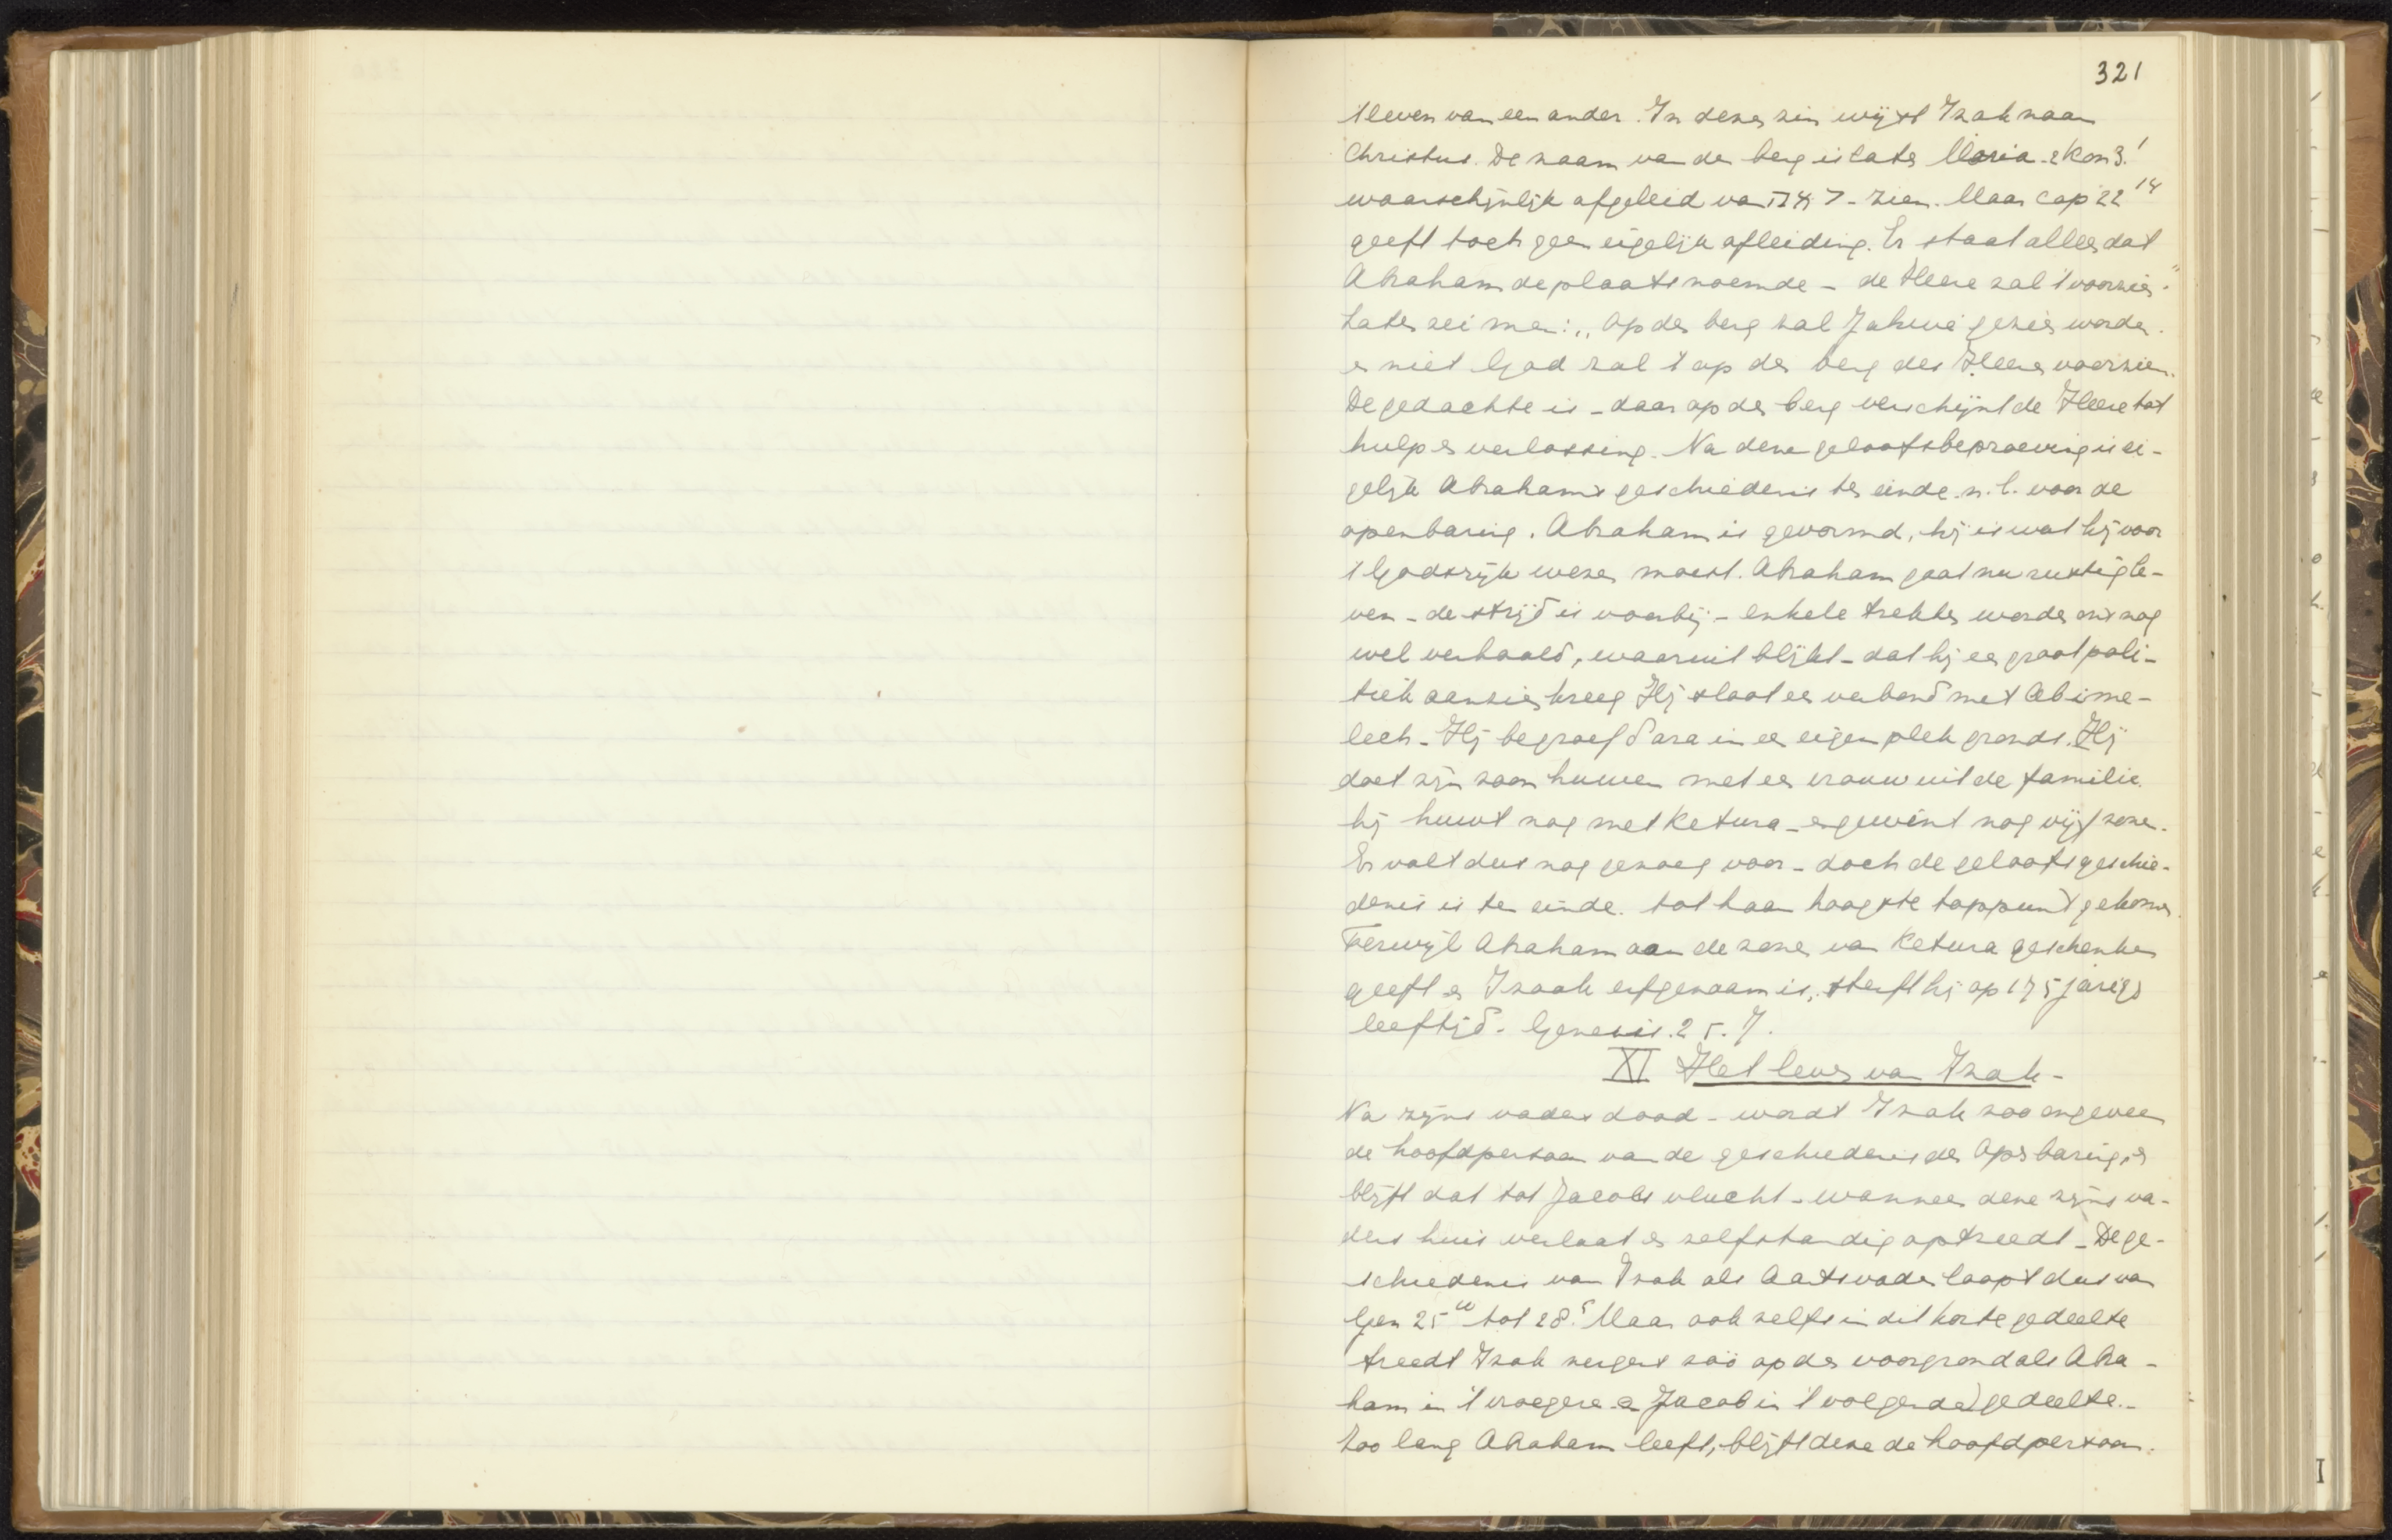 321
'tleven van een ander. In dezen zin wijst Izak naar
Christus. De naam van den berg is later Moria. 2 Kron 3.1
waarschijnlijk afgeleid van ראה - zien. Maar cap 22 14
geeft toch geen eigelijke afleiding. Er staat alleen dat
Abraham de plaats noemde - de Heere zal 't voorzien"
Later zei men: „Op den berg zal Jahwé gezien worden.
en niet God zal 't op den berg des Heeren voorzien.
De gedachte is - daar op den berg verschijnt de Heere tot
hulp en verlossing. Na deze geloofsbeproeving is ei-
gelijk Abrahams geschiedenis ten einde. n.l. voor de
openbaring. Abraham is gevormd, hij is wat hij voor
't Godsrijk wezen moest. Abraham gaat nu rustig le-
ven - de strijd is voorbij - enkele trekken worden ons nog
wel verhaald, waaruit blijkt - dat hij een groot poli-
tiek aanzien kreeg Hij sloot een verbond met Abime-
lech - Hij begroef Sara in een eigen plek gronds. Hij
doet zijn zoon huwen met een vrouw uit de familie.
hij huwt nog met Ketura - en gewint nog vijf zonen.
Er valt dus nog genoeg voor - doch de geloofsgeschie-
denis is ten einde. tot haar hoogste toppunt gekomen.
Terwijl Abraham aan de zonen van Ketura geschenken
geeft en Izaak erfgenaam is, sterft hij op 175 jarigen
leeftijd. Genesis. 25. 7.
XI Het leven van Izak -
Na zijns vaders dood - wordt Izak zoo ongeveer
de hoofdpersoon van de geschiedenis der Openbaring, en
blijft dat tot Jacobs vlucht - wanneer deze zijns va-
ders huis verlaat en zelfstandig optreedt - De ge-
schiedenis van Izak als Aartsvader loopt dus van
Gen 25 tot 28 5. Maar ook zelfs in dit korte gedeelte
treedt Izak nergens zóó op den voorgrond als Abra-
ham in 't vroegere en Jacob in 't volgende) gedeelte. -
Zoo lang Abraham leeft, blijft deze de hoofdpersoon.